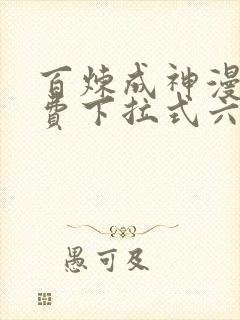 百炼成神漫
费下拉式六
愚可及